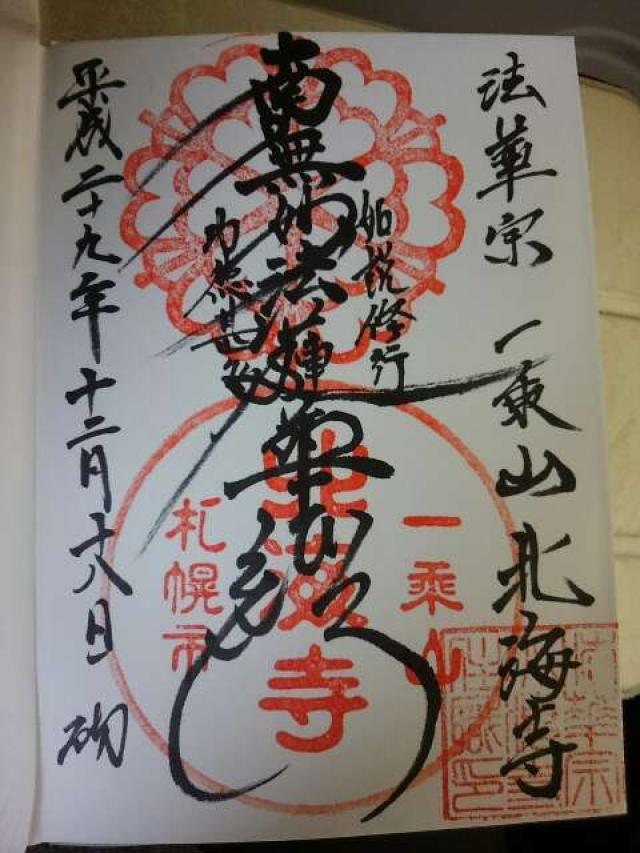 法華宗 一乗山 北海寺
如説修行
南無妙法蓮華経
功徳甚多
平成二十九年十二月十八日
一乗山
北海寺
札幌市